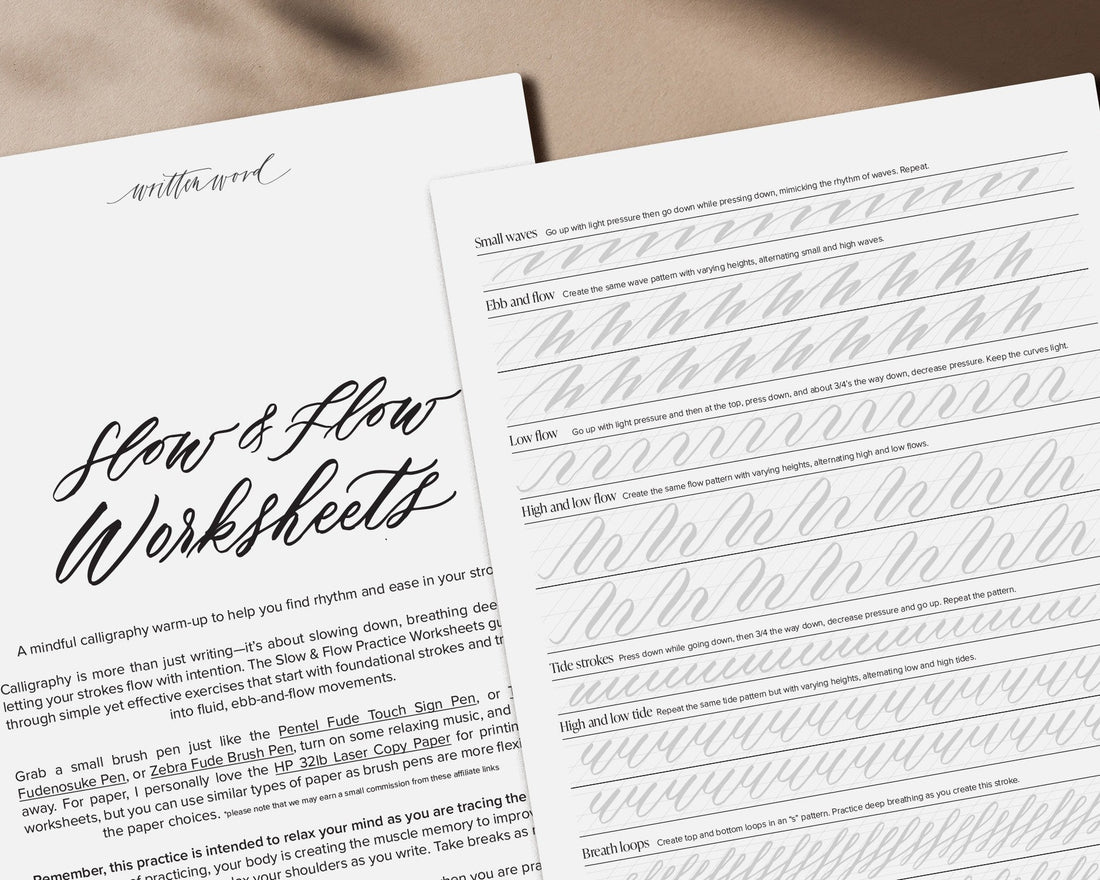 written word
Slow & Flow
Worksheets
A mindful calligraphy warm-up to help you find rhythm and ease in your
Calligraphy is more than just writing—it's about slowing down, breathing
letting your strokes flow with intention. The Slow & Flow Practice Worksheets
through simple yet effective exercises that start with foundational strokes and
into fluid, ebb-and-flow movements.
Grab a small brush pen just like the Pentel Fude Touch Sign Pen, or
Fudenosuke Pen, or Zebra Fude Brush Pen, turn on some relaxing music, and
away. For paper, I personally love the HP 32lb Laser Copy Paper for
worksheets, but you can use similar types of paper as brush pens are more
the paper choices. *please note that we may earn a small commission from these affiliate links
Remember, this practice is intended to relax your mind as you are tracing the
of practicing, your body is creating the muscle memory to
your shoulders as you write. Take breaks as
you are
Small waves Go up with light pressure then go down while pressing down, mimicking the rhythm of waves. Repeat.
Ebb and flow Create the same wave pattern with varying heights, alternating small and high waves.
Low flow Go up with light pressure and then at the top, press down, and about 3/4's the way down, decrease pressure. Keep the curves light.
High and low flow Create the same flow pattern with varying heights, alternating high and low flows.
Tide strokes Press down while going down, then 3/4 the way down, decrease pressure and go up. Repeat the pattern.
High and low tide Repeat the same tide pattern but with varying heights, alternating low and high tides.
Breath loops Create top and bottom loops in an "s" pattern. Practice deep breathing as you create this stroke.